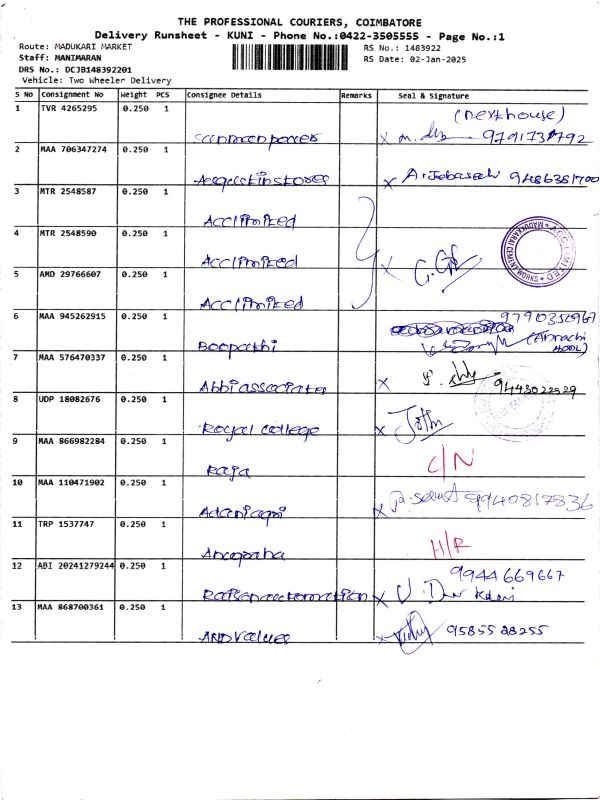 THE PROFESSIONAL COURIERS, COIMBATORE
Delivery Runsheet - KUNI - Phone No.:0422-3505555 - Page No.:1
Route: MADUKARI MARKET RS No.: 1483922
Staff: MANIMARAN RS Date: 02-Jan-2025
DRS No.: DCJB148392201
Vehicle: Two Wheeler Delivery
S No Consignment No Weight PCS Consignee Details Remarks Seal & Signature
1 TVR 4265295 0.250 1 (next house)
sunmanpower x 9791731792
2 MAA 706347274 0.250 1
x A. Jebaseeli 9486381700
3 MTR 2548587 0.250 1
Acc limited
4 MTR 2548590 0.250 1
Acc limited x
ACC LIMITED
MADUKKARAI CEMENT WORKS
5 AMD 29766607 0.250 1
Acc limited
6 MAA 945262915 0.250 1
Boopathi
7 MAA 576470337 0.250 1
Abbi associate x 9443022529
8 UDP 18082676 0.250 1
Royal college x Jothi
9 MAA 866982284 0.250 1
Raja C/N
10 MAA 110471902 0.250 1
Adaniagri x 9940817836
11 TRP 1537747 0.250 1
Anupraba H/R
12 ABI 20241279244 0.250 1 9944669667
x
13 MAA 868700361 0.250 1
AND values x 9585528255